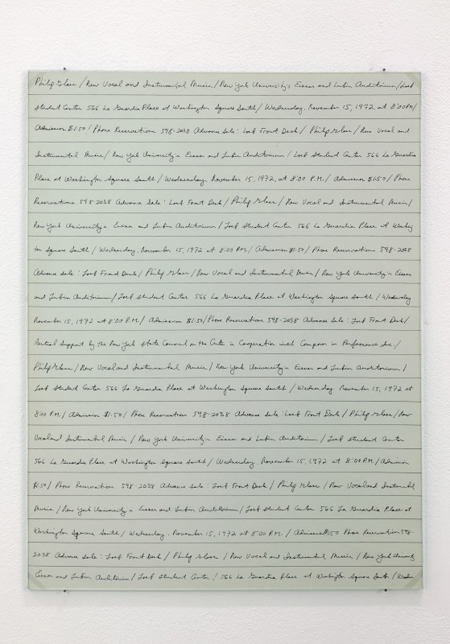 Philip Glass / New Vocal and Instrumental Music / New York University's Eisner and Lubin Auditorium / Loeb
Student Center 566 La Guardia Place at Washington Square South / Wednesday, November 15, 1972 at 8:00 P.M./
Admission $1.50 / Phone Reservation 598-2038 Advance Sale: Loeb Front Desk / Philip Glass / New Vocal and
Instrumental Music / New York University's Eisner and Lubin Auditorium / Loeb Student Center 566 La Guardia
Place at Washington Square South / Wednesday, November 15, 1972, at 8:00 P.M. / Admission $1.50 / Phone
Reservations 598-2038 Advance Sale: Loeb Front Desk / Philip Glass / New Vocal and Instrumental Music /
New York University's Eisner and Lubin Auditorium / Loeb Student Center 566 La Guardia Place at Washing
ton Square South / Wednesday, November 15, 1972, at 8:00 P.M. / Admission $1.50 / Phone Reservations 598-2038
Advance Sale: Loeb Front Desk / Philip Glass / New Vocal and Instrumental Music / New York University's Eisner
and Lubin Auditorium / Loeb Student Center 566 La Guardia Place at Washington Square South / Wednesday
November 15, 1972 at 8:00 P.M. / Admission $1.50 / Phone Reservation 598-2038 Advance Sale: Loeb Front Desk /
Partial Support by the New York State Council on the Arts in Cooperation with Composers in Performance Inc /
Philip Glass / New Vocal and Instrumental Music / New York University's Eisner and Lubin Auditorium /
Loeb Student Center 566 La Guardia Place at Washington Square South / Wednesday November 15, 1972 at
8:00 P.M. / Admission $1.50 / Phone Reservation 598-2038 Advance Sale: Loeb Front Desk / Philip Glass / New
Vocal and Instrumental Music / New York University's Eisner and Lubin Auditorium / Loeb Student Center
566 La Guardia Place at Washington Square South / Wednesday November 15, 1972 at 8:00 P.M. / Admission
$1.50 / Phone Reservation 598-2038 Advance Sale: Loeb Front Desk / Philip Glass / New Vocal and Instrumental
Music / New York University's Eisner and Lubin Auditorium / Loeb Student Center 566 La Guardia Place at
Washington Square South / Wednesday, November 15, 1972 at 8:00 P.M. / Admission $1.50 Phone Reservation 598-
2038 Advance Sale: Loeb Front Desk / Philip Glass / New Vocal and Instrumental Music / New York University
Eisner and Lubin Auditorium / Loeb Student Center / 566 La Guardia Place at Washington Square South /